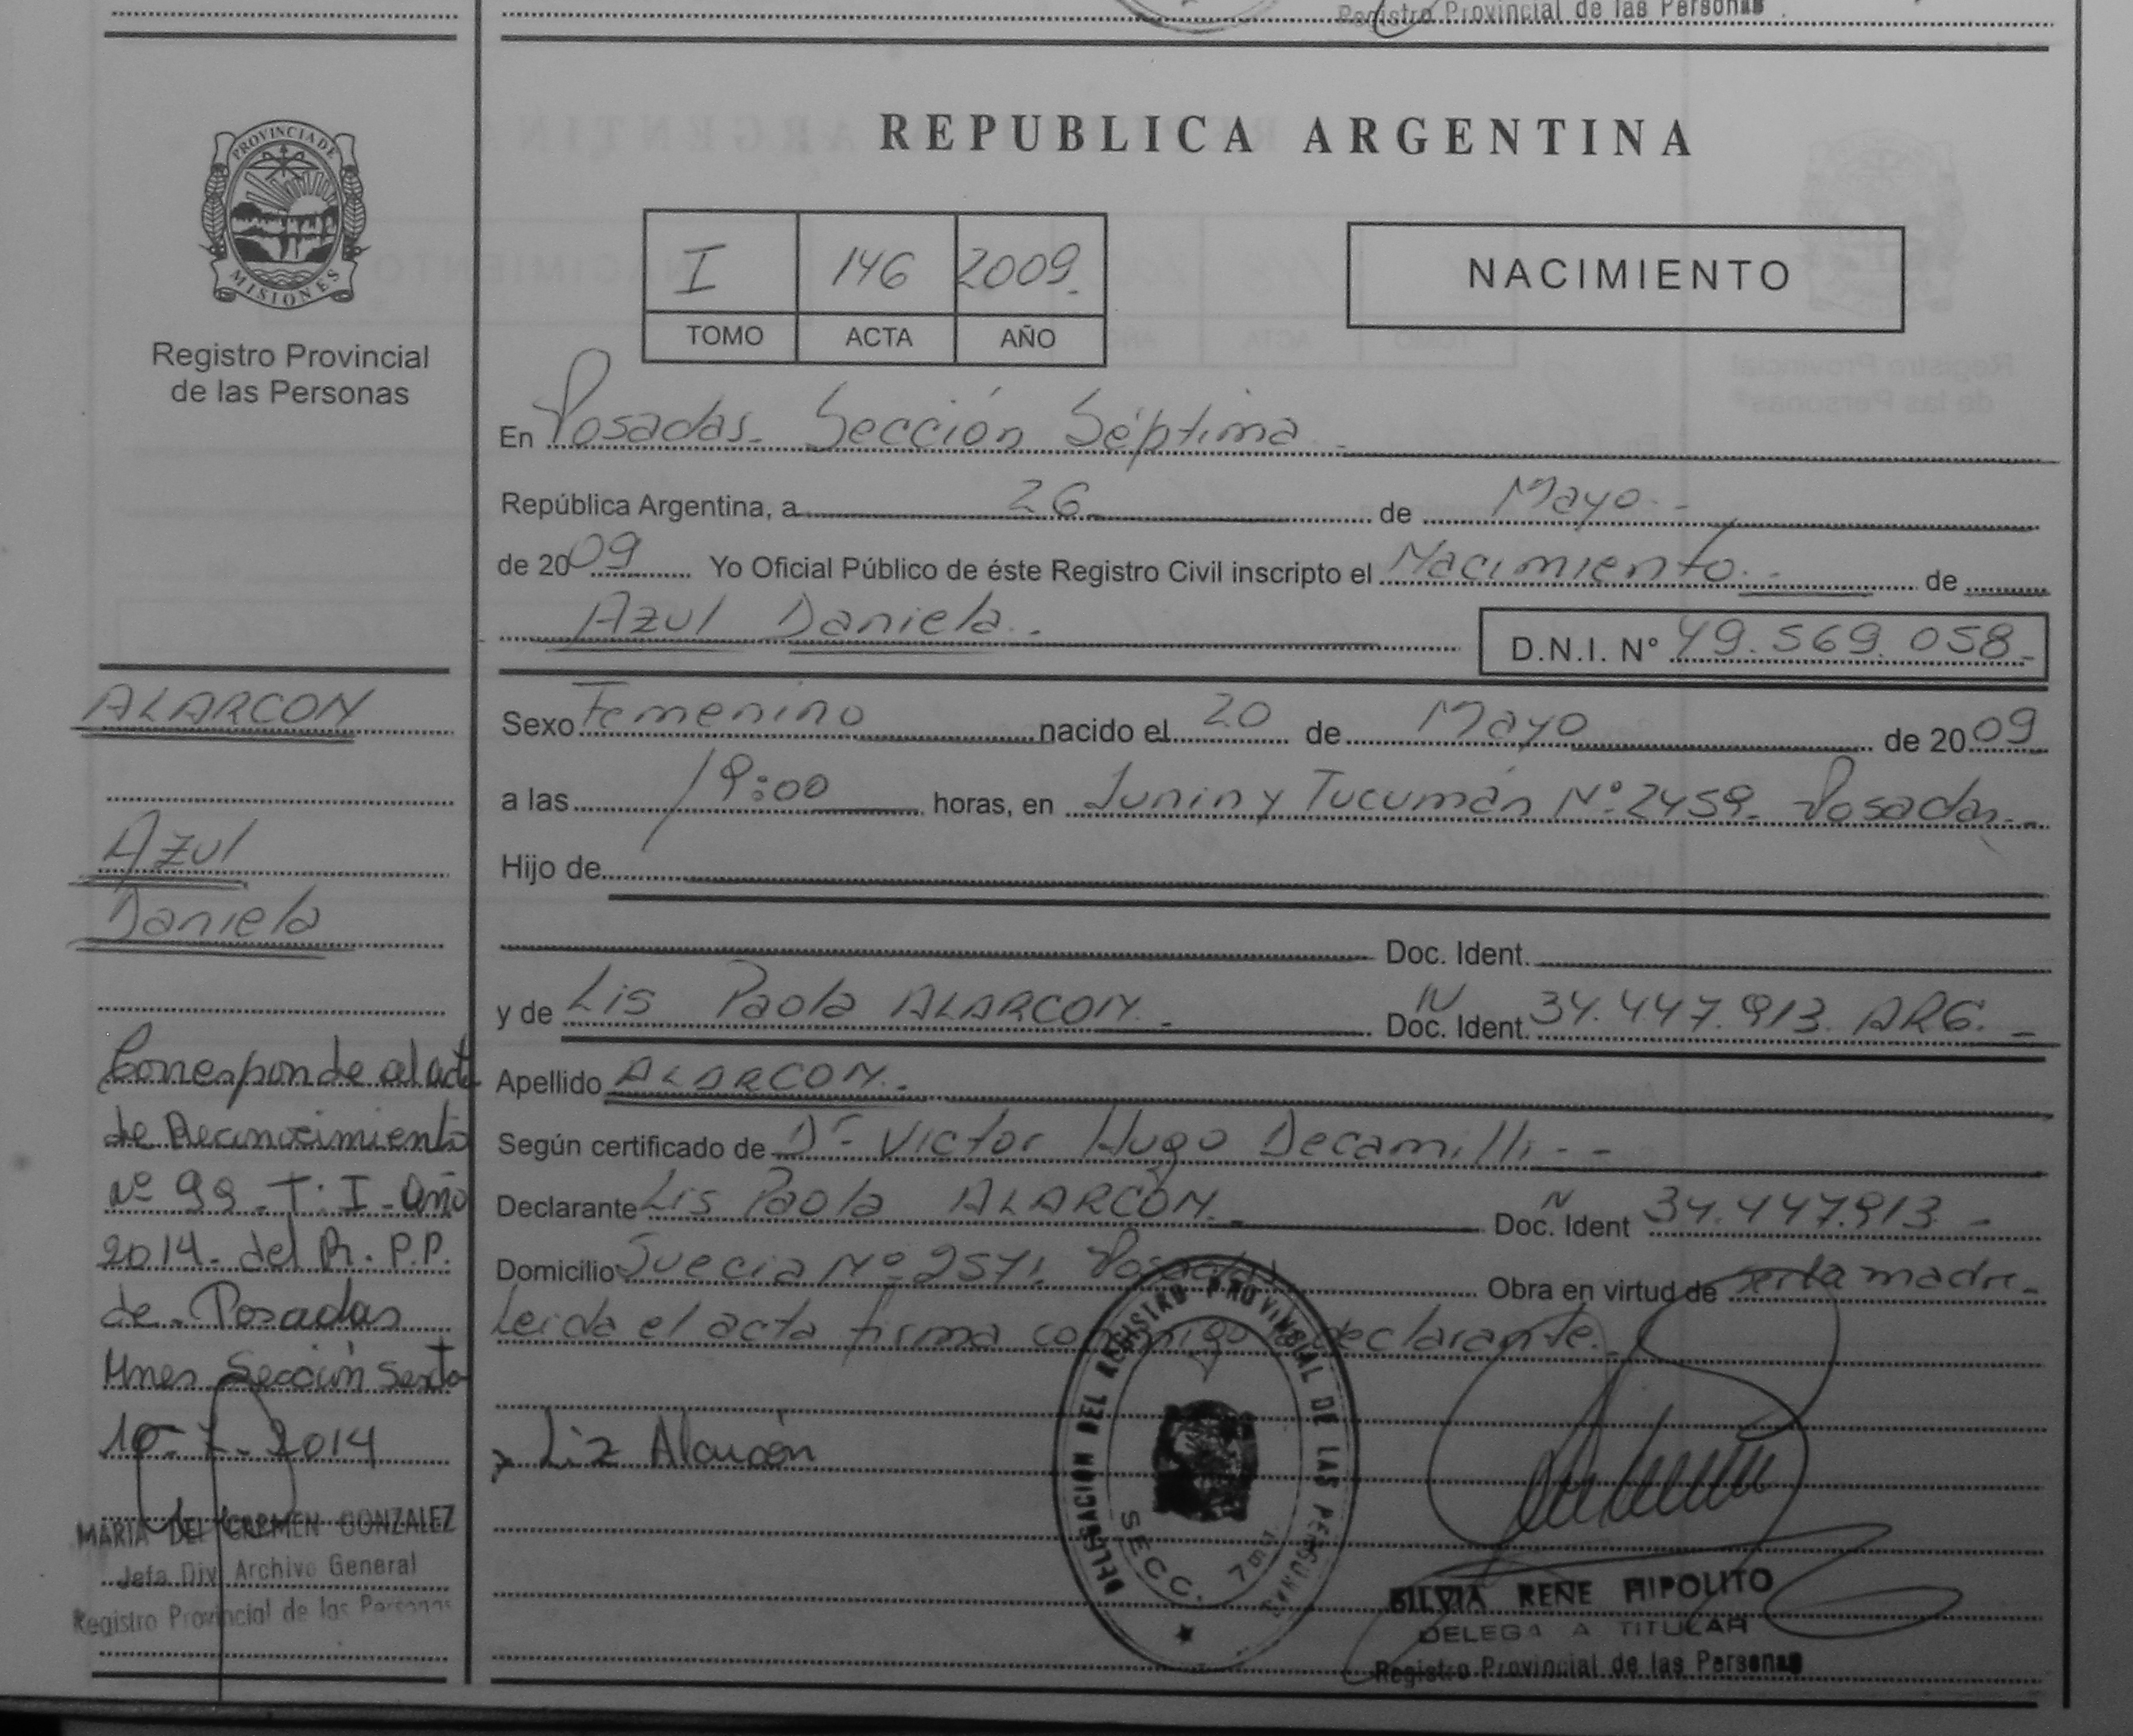 Registro Provincial de las Personas
PROVINCIA DE
MISIONES
Registro Provincial
de las Personas
ALARCON
Azul
Daniela
Corresponde al acta
de Reconocimiento
Nº 99 - T: I - Año
2014 - del R. P.P.
de - Posadas
Mnes Sección Sexta
10 - 7 - 2014
MARIA DEL CARMEN GONZALEZ
Jefa Div. Archivo General
Registro Provincial de las Personas
REPUBLICA ARGENTINA
I 146 2009.
TOMO ACTA AÑO
NACIMIENTO
En Posadas - Sección Séptima -
República Argentina, a 26 de Mayo -
de 2009 Yo Oficial Público de éste Registro Civil inscripto el Nacimiento - de
Azul Daniela - D.N.I. Nº 49.569.058-
Sexo Femenino nacido el 20 de Mayo de 2009
a las 19:00 horas, en Junin y Tucumán Nº 2459- Posadas -
Hijo de
Doc. Ident.
y de Lis Paola ALARCON - Doc. Ident. 34.447.913 ARG. -
Apellido ALARCON -
Según certificado de Dr Victor Hugo Decamilli - -
Declarante Lis Paola ALARCÓN - Doc. Ident 34.447.913 -
Domicilio Suecia Nº 2571 Posadas Obra en virtud de ser la madre -
Leida el acta firma conmigo declarante.
Liz Alarcón
DELEGACIÓN DEL REGISTRO PROVINCIAL DE LAS PERSONAS
SECC. 7ma
SILVIA RENE HIPOLITO
DELEGADA TITULAR
Registro Provincial de las Personas